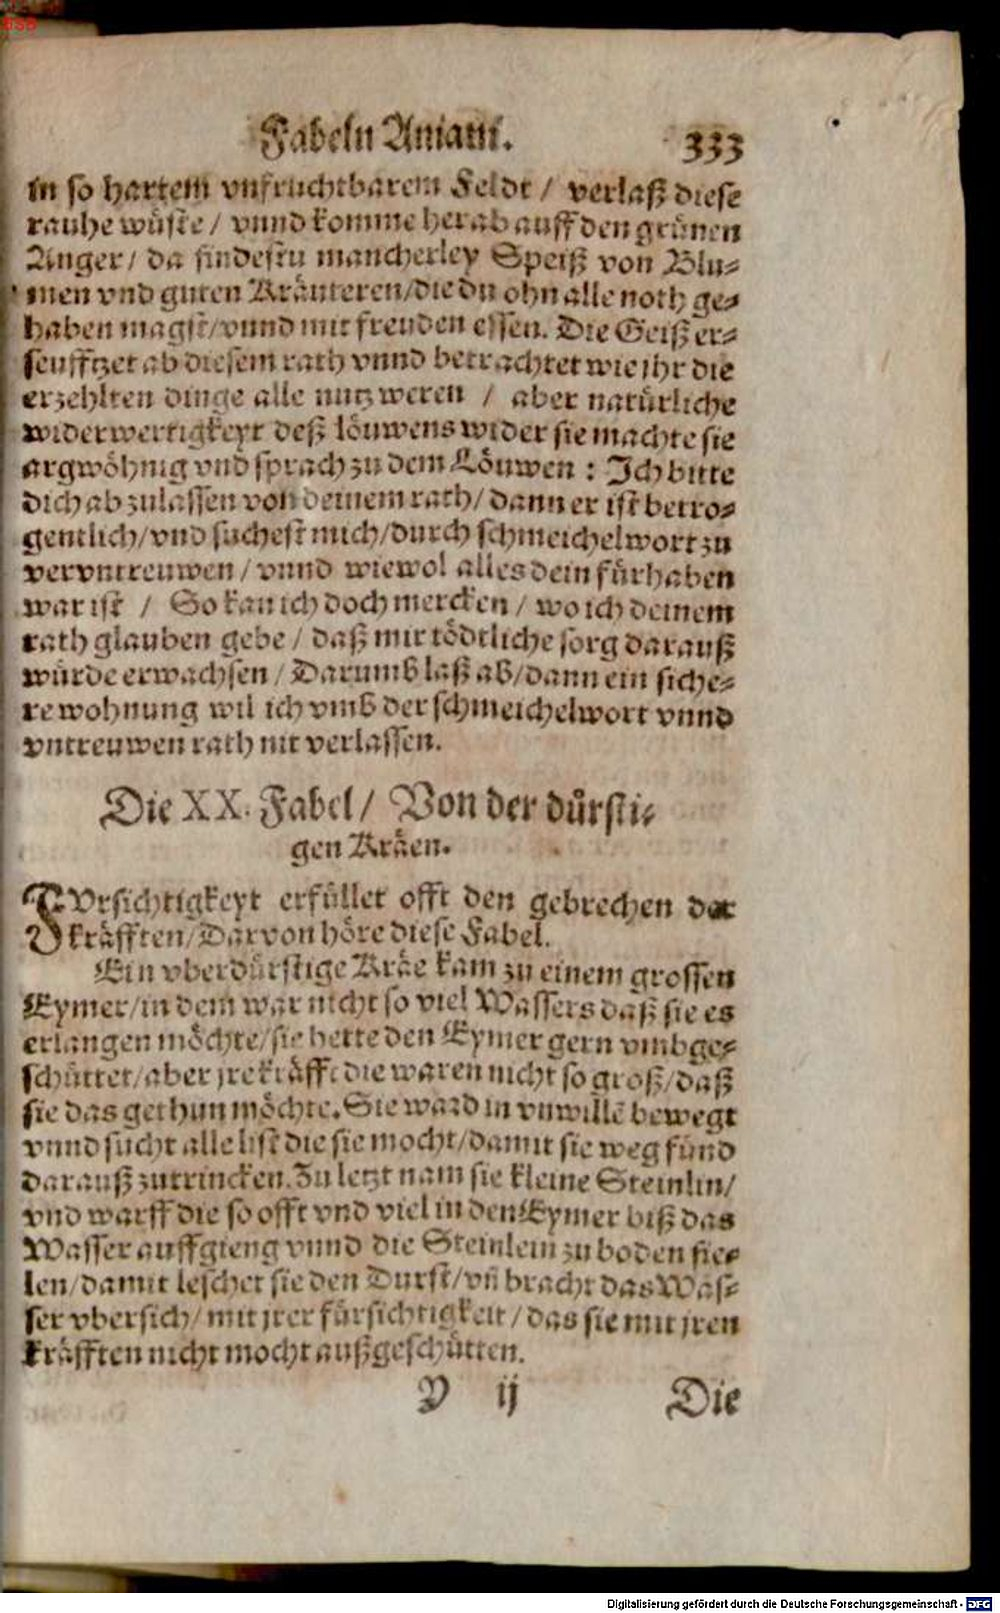 BSB
Fabeln Aniani. 333
in so hartem vnfruchtbarem Feldt / verlaß diese
rauhe wüste / vnnd komme herab auff den grünen
Anger / da findestu mancherley Speiß von Blu-
men vnd guten Kräuteren / die du ohn alle noth ge-
haben magst / vnnd mit freuden essen. Die Geiß er-
seufftzet ab diesem rath vnnd betrachtet wie jhr die
erzehlten dinge alle nutz weren / aber natürliche
widerwertigkeyt deß löuwens wider sie machte sie
argwöhnig vnd sprach zu dem Löuwen : Ich bitte
dich abzulassen von deinem rath / dann er ist betro-
gentlich / vnd suchest mich / durch schmeichelwort zu
vervntreuwen / vnnd wiewol alles dein fürhaben
war ist / So kan ich doch mercken / wo ich deinem
rath glauben gebe / daß mir tödtliche sorg darauß
würde erwachsen / Darumb laß ab / dann ein siche-
re wohnung wil ich vmb der schmeichelwort vnnd
vntreuwen rath nit verlassen.
Die XX. Fabel / Von der dürsti-
gen Kräen.
FVrsichtigkeyt erfüllet offt den gebrechen der
kräfften / Darvon höre diese Fabel.
Ein vberdürstige Kräe kam zu einem grossen
Eymer / in dem war nicht so viel Wassers daß sie es
erlangen möchte / sie hette den Eymer gern vmbge-
schüttet / aber jre kräfft die waren nicht so groß / daß
sie das gethun möchte. Sie ward in vnwillē bewegt
vnnd sucht alle list die sie mocht / damit sie weg fünd
darauß zutrincken. Zu letzt nam sie kleine Steinlin /
vnd warff die so offt vnd viel in den Eymer biß das
Wasser auffgieng vnnd die Steinlein zu boden fie-
len / damit leschet sie den Durst / vñ bracht das Was-
ser vbersich / mit jrer fürsichtigkeit / das sie mit jren
kräfften nicht mocht außgeschütten.
Y ij Die
Digitalisierung gefördert durch die Deutsche Forschungsgemeinschaft - DFG